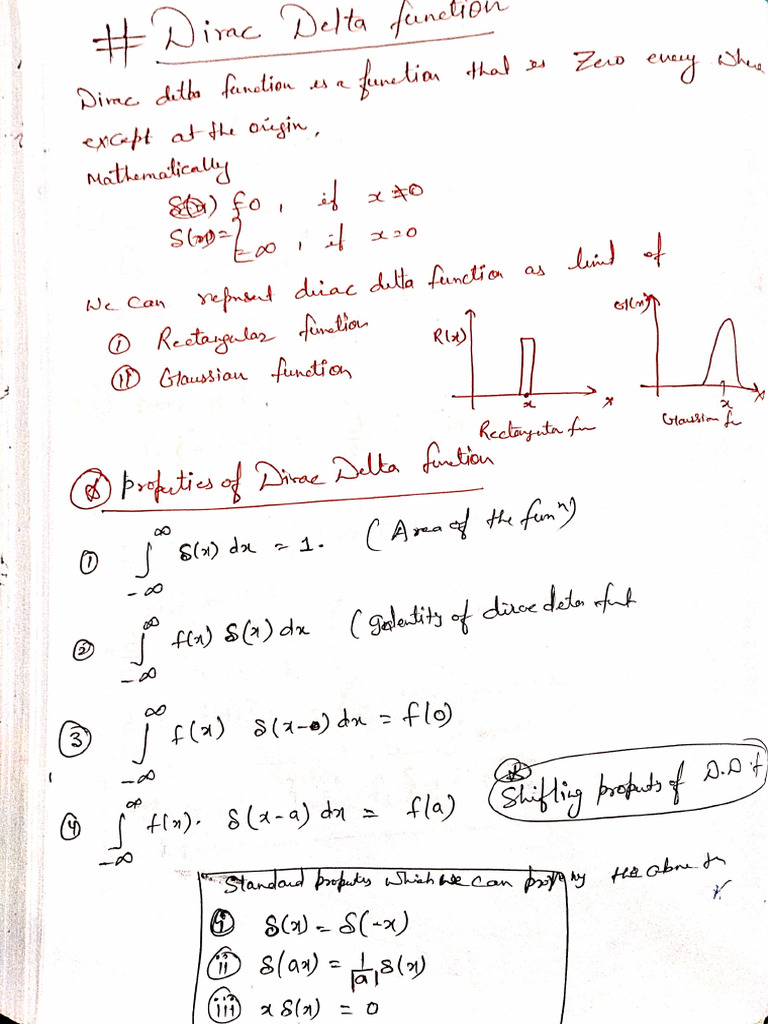 # Dirac Delta function
Dirac delta function is a function that is Zero every where
except at the origin,
Mathematically
δ(x) { 0 , if x ≠ 0
δ(x) = { = ∞ , if x = 0
We can represent dirac delta function as limit of
(i) Rectangular function
(ii) Gaussian function
R(x)
x
x
Rectangular fun
G(x)
x
x
Gaussian fn
Properties of Dirac Delta function
(1) ∫_{-∞}^{∞} δ(x) dx = 1. (Area of the funⁿ)
(2) ∫_{-∞}^{∞} f(x) δ(x) dx (Identity of dirac delta
(3) ∫_{-∞}^{∞} f(x) δ(x-0) dx = f(0)
(4) ∫_{-∞}^{∞} f(x). δ(x-a) dx = f(a)
Shifting property of D.D.f
Standard properties which we can prove by the above
(i) δ(x) = δ(-x)
(ii) δ(ax) = 1/|a| δ(x)
(iii) x δ(x) = 0